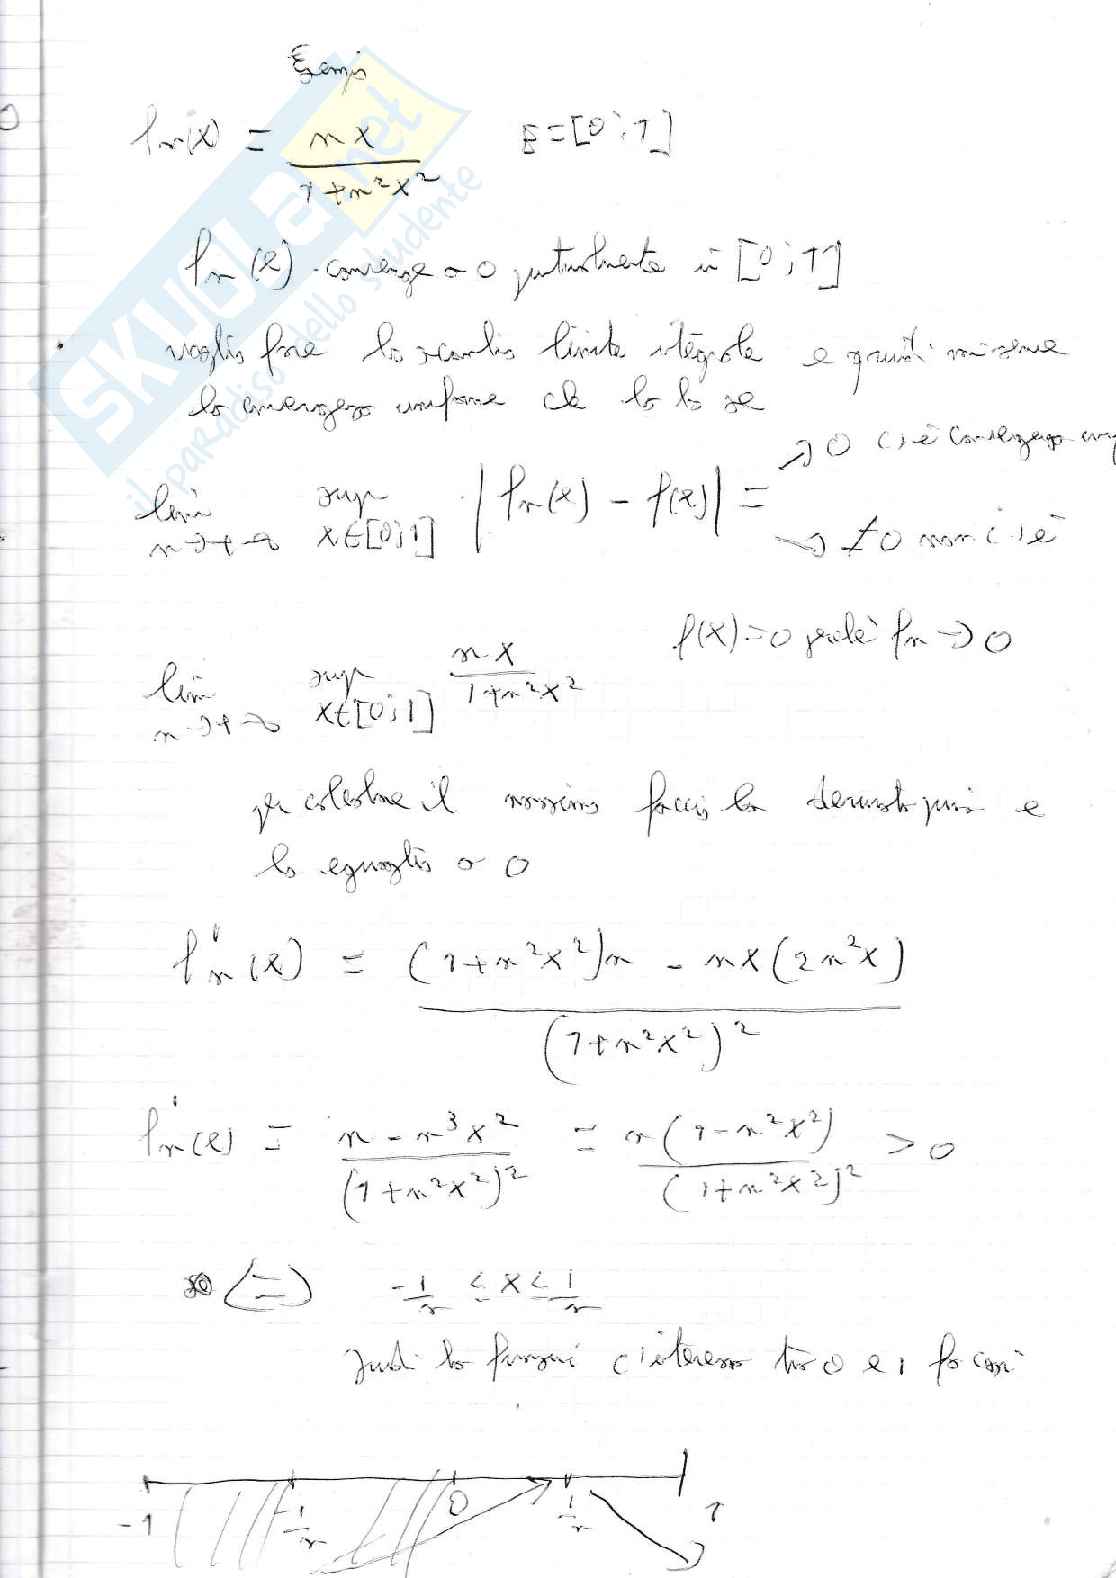 Esempio
fn(x) = nx / 1+n²x² E=[0;1]
fn(x) converge a 0 puntualmente in [0;1]
voglio fare lo scambio limite integrale e quindi mi serve
la convergenza uniforme che lo ho se
lim n→+∞ sup x∈[0;1] |fn(x) - f(x)| = → 0 c'è convergenza
→ ≠0 non c'è
f(x)=0 perché fn→0
lim n→+∞ sup x∈[0;1] nx / 1+n²x²
per calcolare il massimo faccio la derivata prima e
la eguaglio a 0
f'n(x) = (1+n²x²)n - nx(2n²x) / (1+n²x²)²
f'n(x) = n-n³x² / (1+n²x²)² = n(1-n²x²) / (1+n²x²)² > 0
(=) -1/n ≤ x ≤ 1/n
quindi la funzione c'interessa tra 0 e 1 fa così
-1 -1/n 0 1/n 1
SKUOLA.net
il paradiso dello studente